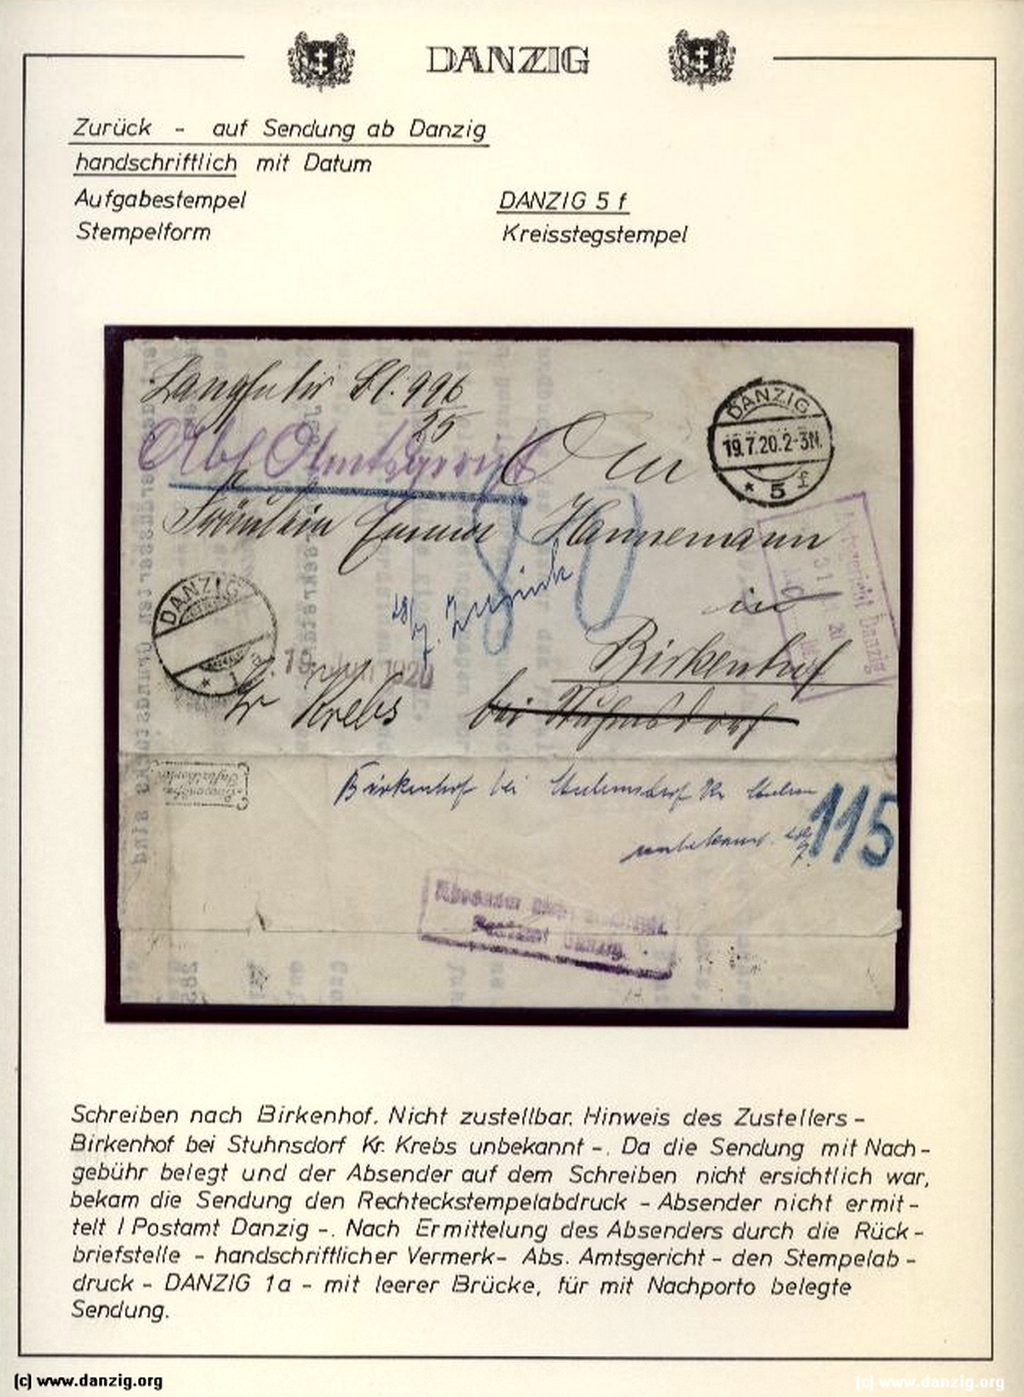 DANZIG
Zurück - auf Sendung ab Danzig
handschriftlich mit Datum
Aufgabestempel DANZIG 5 f
Stempelform Kreisstegstempel
Langfuhr Bl. 996
25
Abs Amtsgericht
An
DANZIG
19.7.20.2-3N.
* 5 f
Fräulein Emma Hannemann
80
Amtsgericht Danzig
DANZIG
* 1 a
zurück
in
Birkenhof
19 1920
Kr Krebs bei Stuhmsdorf
Birkenhof bei Stuhmsdorf Kr Stuhm
unbekannt.
115
Absender nicht ermittelt.
Postamt Danzig.
Schreiben nach Birkenhof. Nicht zustellbar. Hinweis des Zustellers -
Birkenhof bei Stuhnsdorf Kr. Krebs unbekannt -. Da die Sendung mit Nach-
gebühr belegt und der Absender auf dem Schreiben nicht ersichtlich war,
bekam die Sendung den Rechteckstempelabdruck - Absender nicht ermit-
telt / Postamt Danzig -. Nach Ermittelung des Absenders durch die Rück-
briefstelle - handschriftlicher Vermerk- Abs. Amtsgericht - den Stempelab-
druck - DANZIG 1a - mit leerer Brücke, für mit Nachporto belegte
Sendung.
(c) www.danzig.org
(c) www.danzig.org